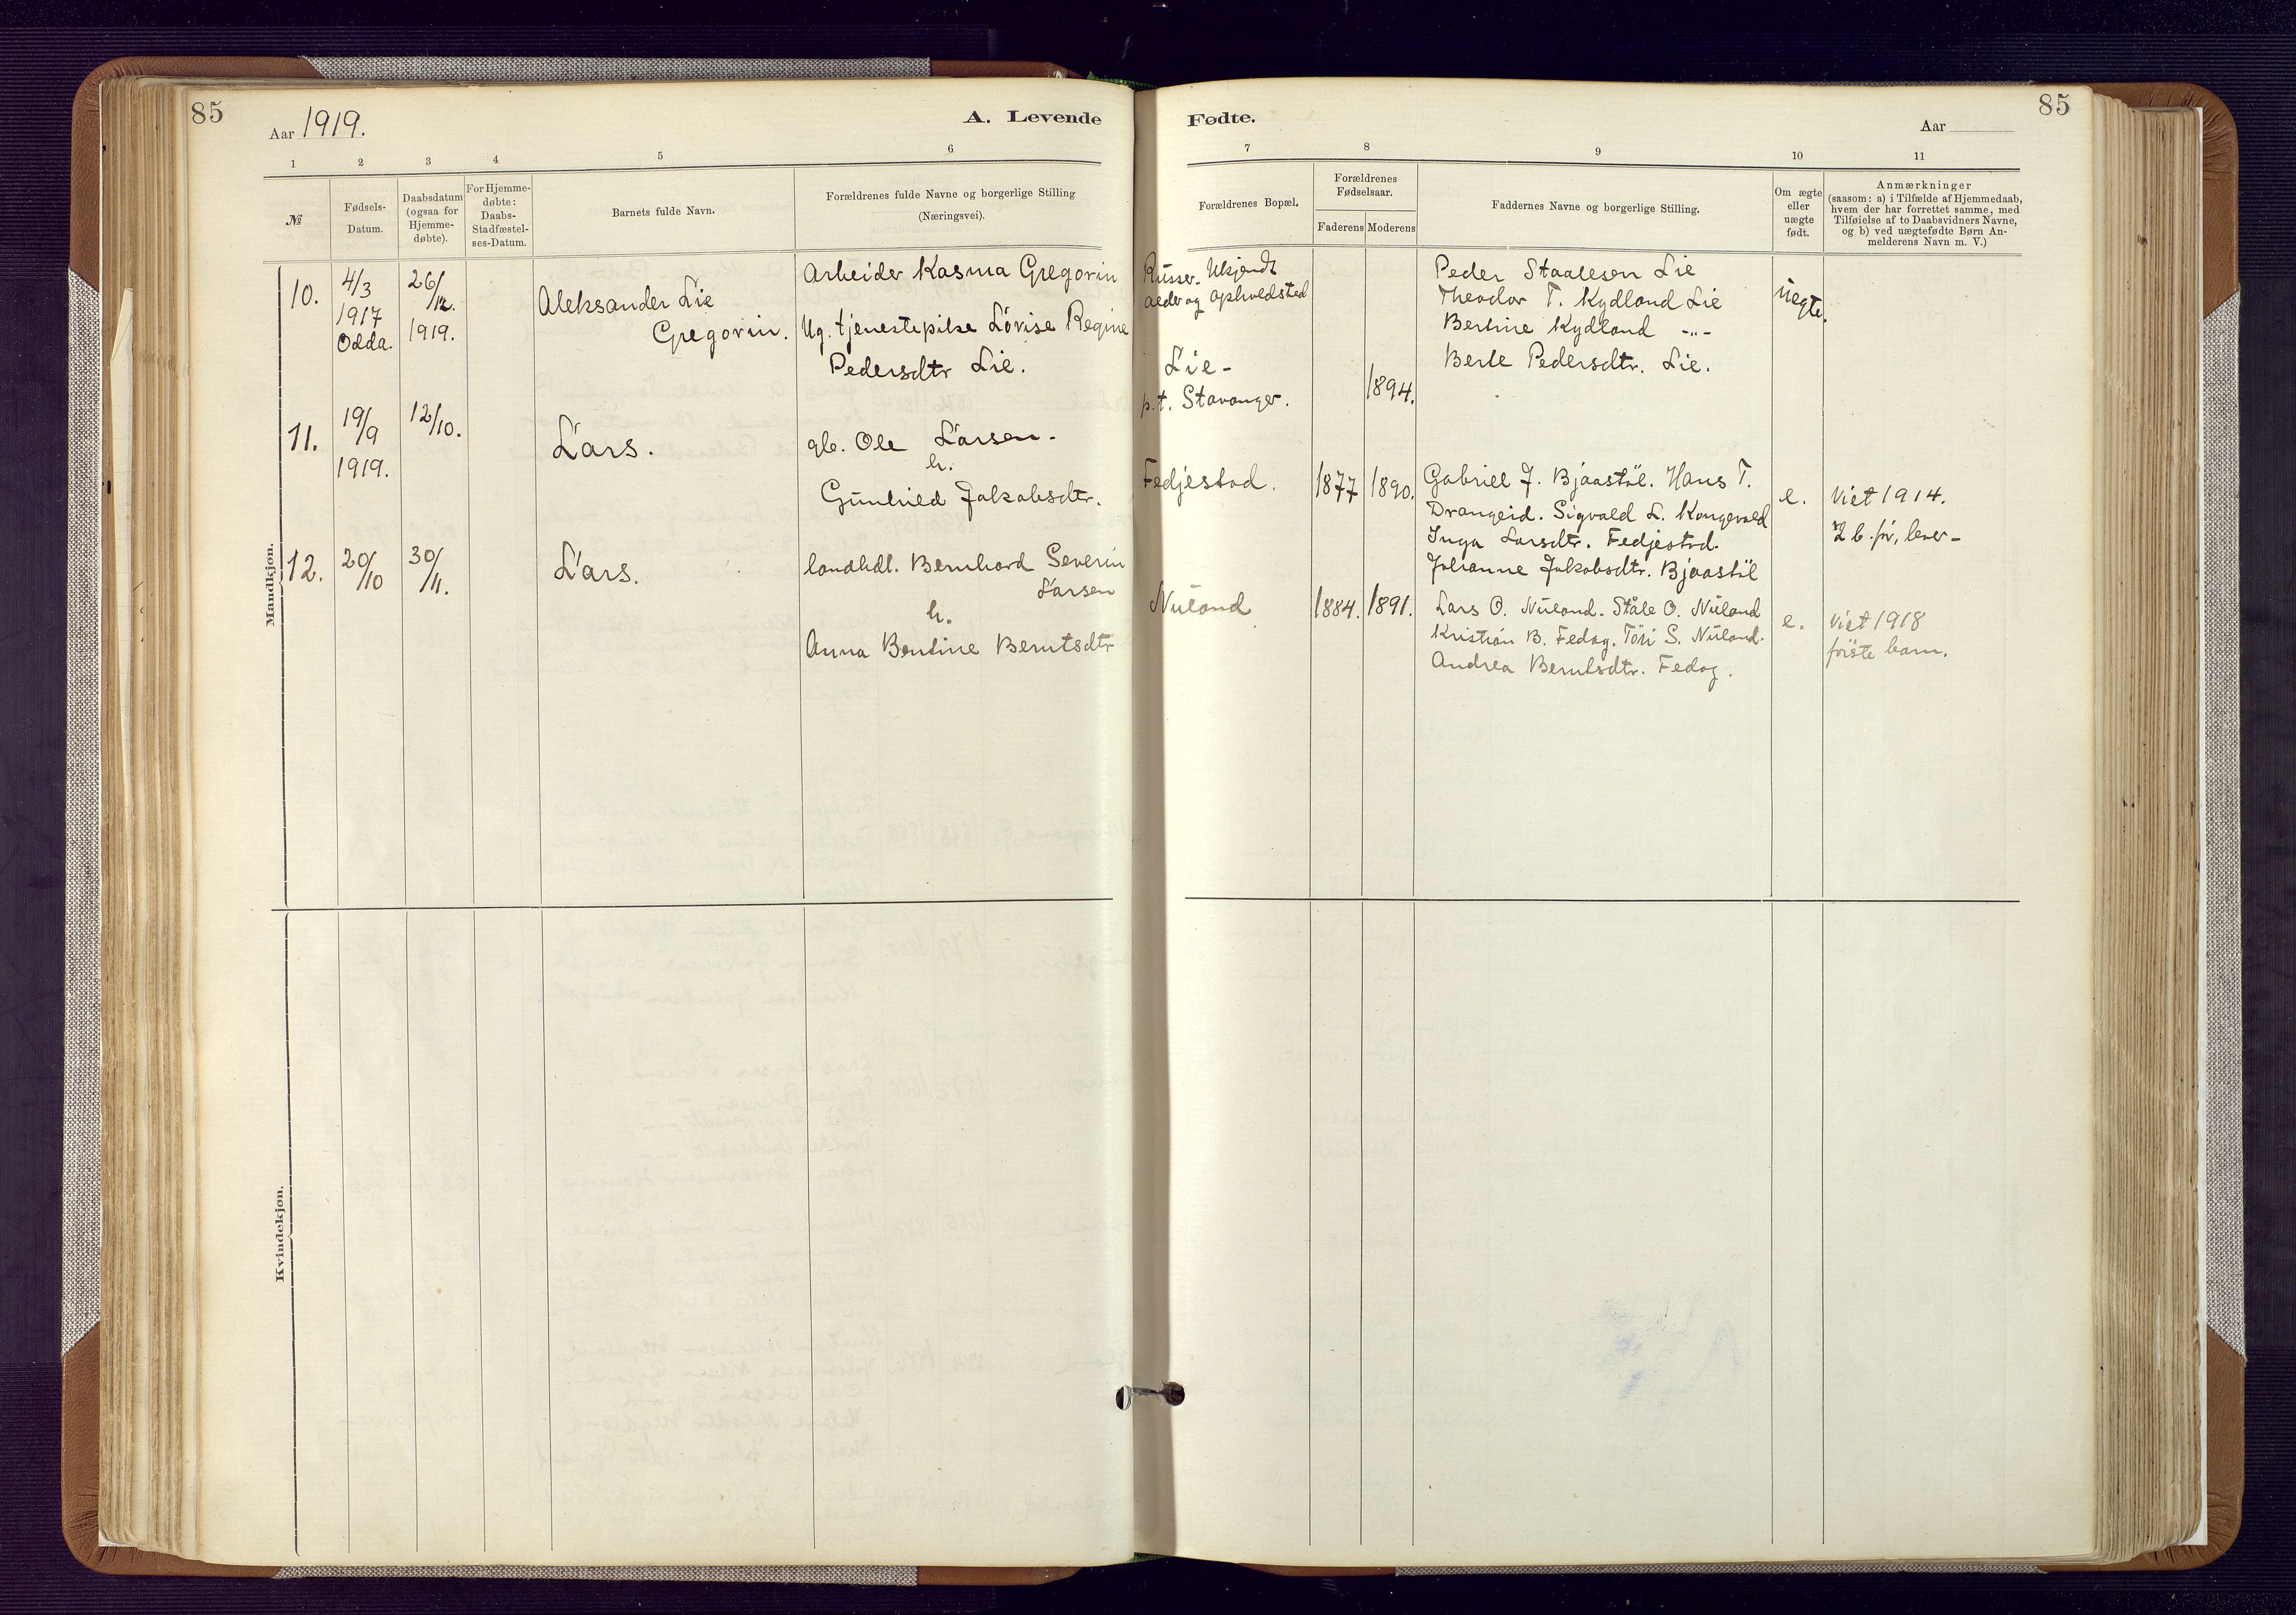 85
Aar 1919.
A. Levende
Fødte.
Aar
85
1 2 3 4 5 6 7 8 9 10 11
№
Fødsels-
Datum.
Daabsdatum
(ogsaa for
Hjemme-
døbte).
For Hjemme-
døbte:
Daabs-
Stadfæstel-
ses-Datum.
Barnets fulde Navn.
Forældrenes fulde Navne og borgerlige Stilling
(Næringsvei).
Forældrenes Bopæl.
Forældrenes
Fødselsaar.
Faderens Moderens
Faddernes Navne og borgerlige Stilling.
Om ægte
eller
uægte
født.
Anmærkninger
(saasom: a) i Tilfælde af Hjemmedaab,
hvem der har forrettet samme, med
Tilføielse af to Daabsvidners Navne,
og b) ved uægtefødte Børn An-
melderens Navn m. V.)
Mandkjøn.
10.
4/3
1917
Odda.
26/12.
1919.
Aleksander Lie
Gregorin.
Arbeider Kasma Gregorin
Ug. tjenestepike Lovise Regine
Pedersdtr Lie.
Russer. Ukjendt
alder og opholdsted
Lie -
p.t. Stavanger.
1894.
Peder Staalesen Lie
Theodor T. Kydland Lie
Bertine Kydland -"-
Berte Pedersdtr. Lie.
Uegte.
11.
19/9
1919.
12/10.
Lars.
gb. Ole Larsen.
h.
Gunhild Jakobsdtr.
Fedjestad.
1877
1890.
Gabriel J. Bjaastøl. Hans T.
Drangeid. Sigvald L. Kongevold
Inga Larsdtr. Fedjestad.
Julianne Jakobsdtr. Bjaastøl
e.
Viet 1914.
2 b. før, lever -
12.
20/10
30/11.
Lars.
landhdl. Bernhard Severin
Larsen
h.
Anna Bentine Berntsdtr
Nuland
1884.
1891.
Lars O. Nuland. Ståle O. Nuland
Kristian B. Fedog. Tøri S. Nuland.
Andrea Berntsdtr. Fedog.
e.
Viet 1918
første barn.
Kvindekjøn.